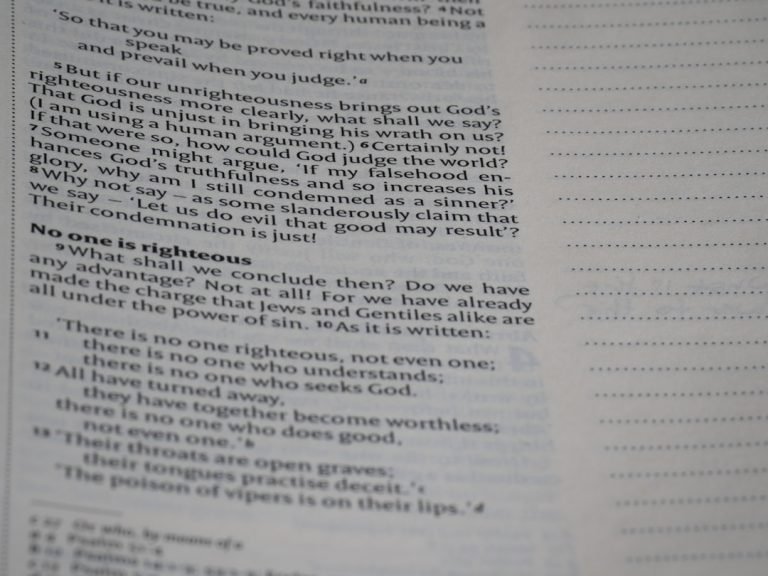 God's faithfulness? 4 Not
be true, and every human being a
it is written:
'So that you may be proved right when you
speak
and prevail when you judge.' a
5 But if our unrighteousness brings out God's
righteousness more clearly, what shall we say?
That God is unjust in bringing his wrath on us?
(I am using a human argument.) 6 Certainly not!
If that were so, how could God judge the world?
7 Someone might argue, 'If my falsehood en-
hances God's truthfulness and so increases his
glory, why am I still condemned as a sinner?'
8 Why not say – as some slanderously claim that
we say – 'Let us do evil that good may result'?
Their condemnation is just!
No one is righteous
9 What shall we conclude then? Do we have
any advantage? Not at all! For we have already
made the charge that Jews and Gentiles alike are
all under the power of sin. 10 As it is written:
'There is no one righteous, not even one;
11 there is no one who understands;
there is no one who seeks God.
12 All have turned away,
they have together become worthless;
there is no one who does good,
not even one.' b
13 'Their throats are open graves;
their tongues practise deceit.' c
'The poison of vipers is on their lips.' d
Or who, by means of a
Psalm